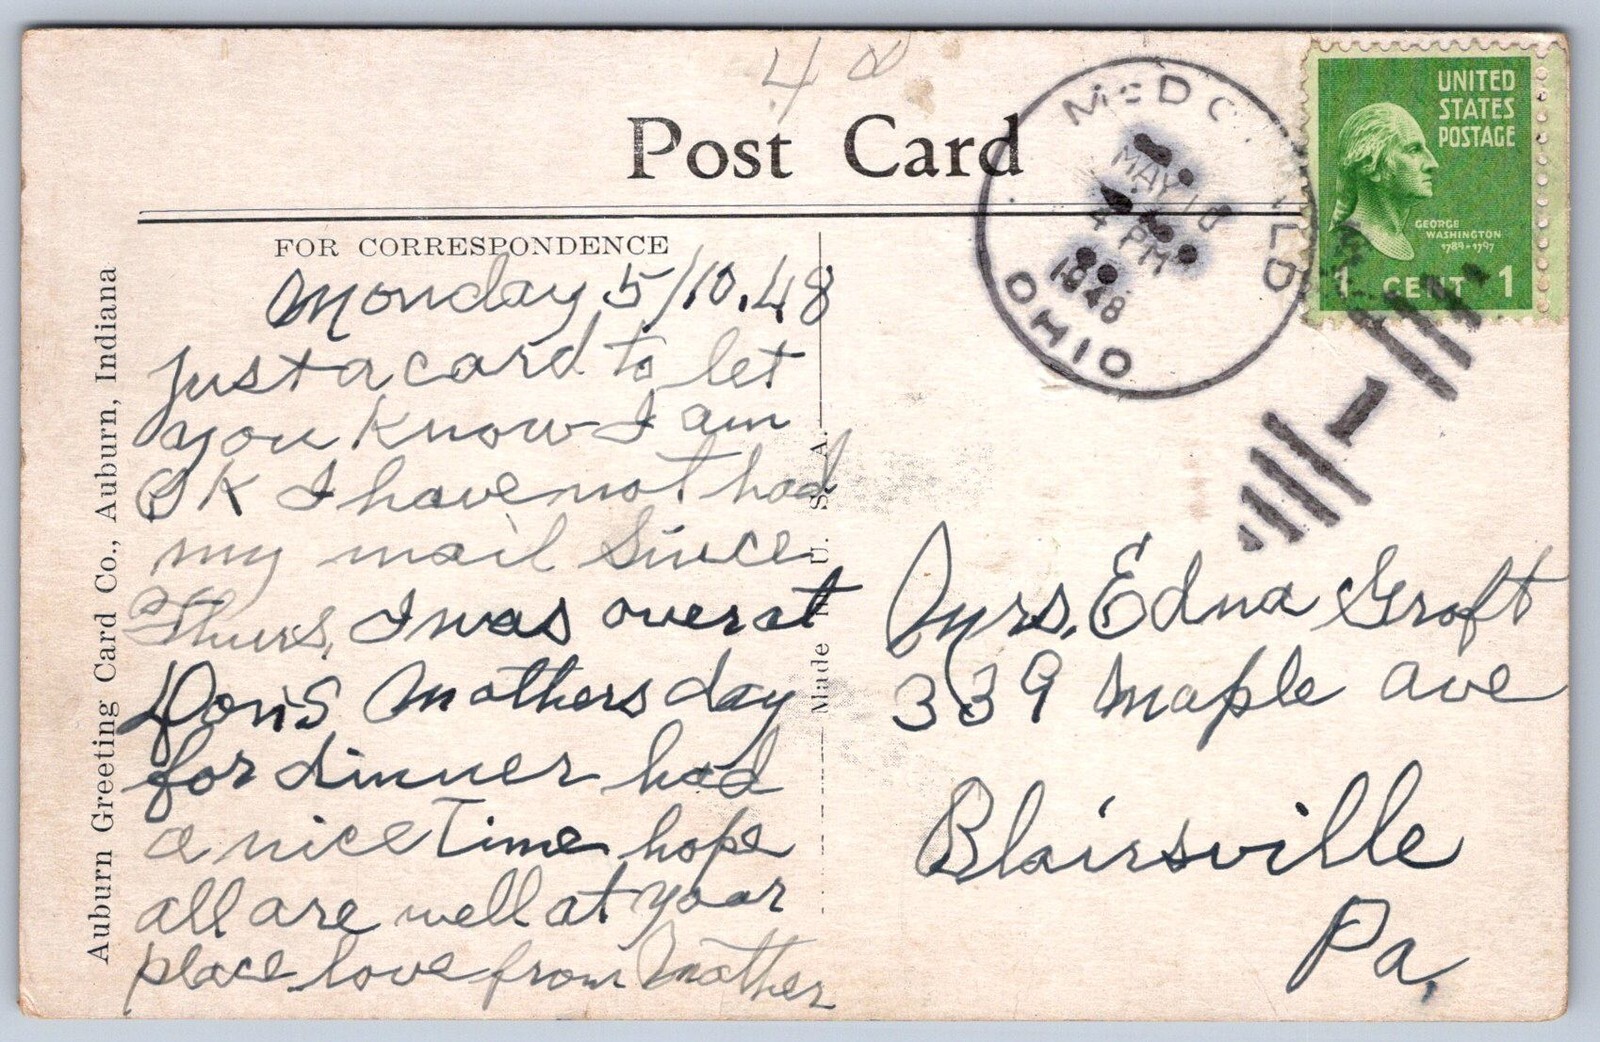 4
Post Card
McDONALD
MAY 10
4 PM
1948
OHIO
UNITED
STATES
POSTAGE
GEORGE
WASHINGTON
1789-1797
1 CENT 1
FOR CORRESPONDENCE
Monday 5/10.48
Just a card to let
you know I am
OK I have not had
my mail since
Thurs, I was over at
Don's Mothers day
for dinner had
a nice Time hope
all are well at your
place love from Mother
Auburn Greeting Card Co., Auburn, Indiana
Made In U. S. A.
Mrs. Edna Groft
339 Maple ave
Blairsville
Pa.